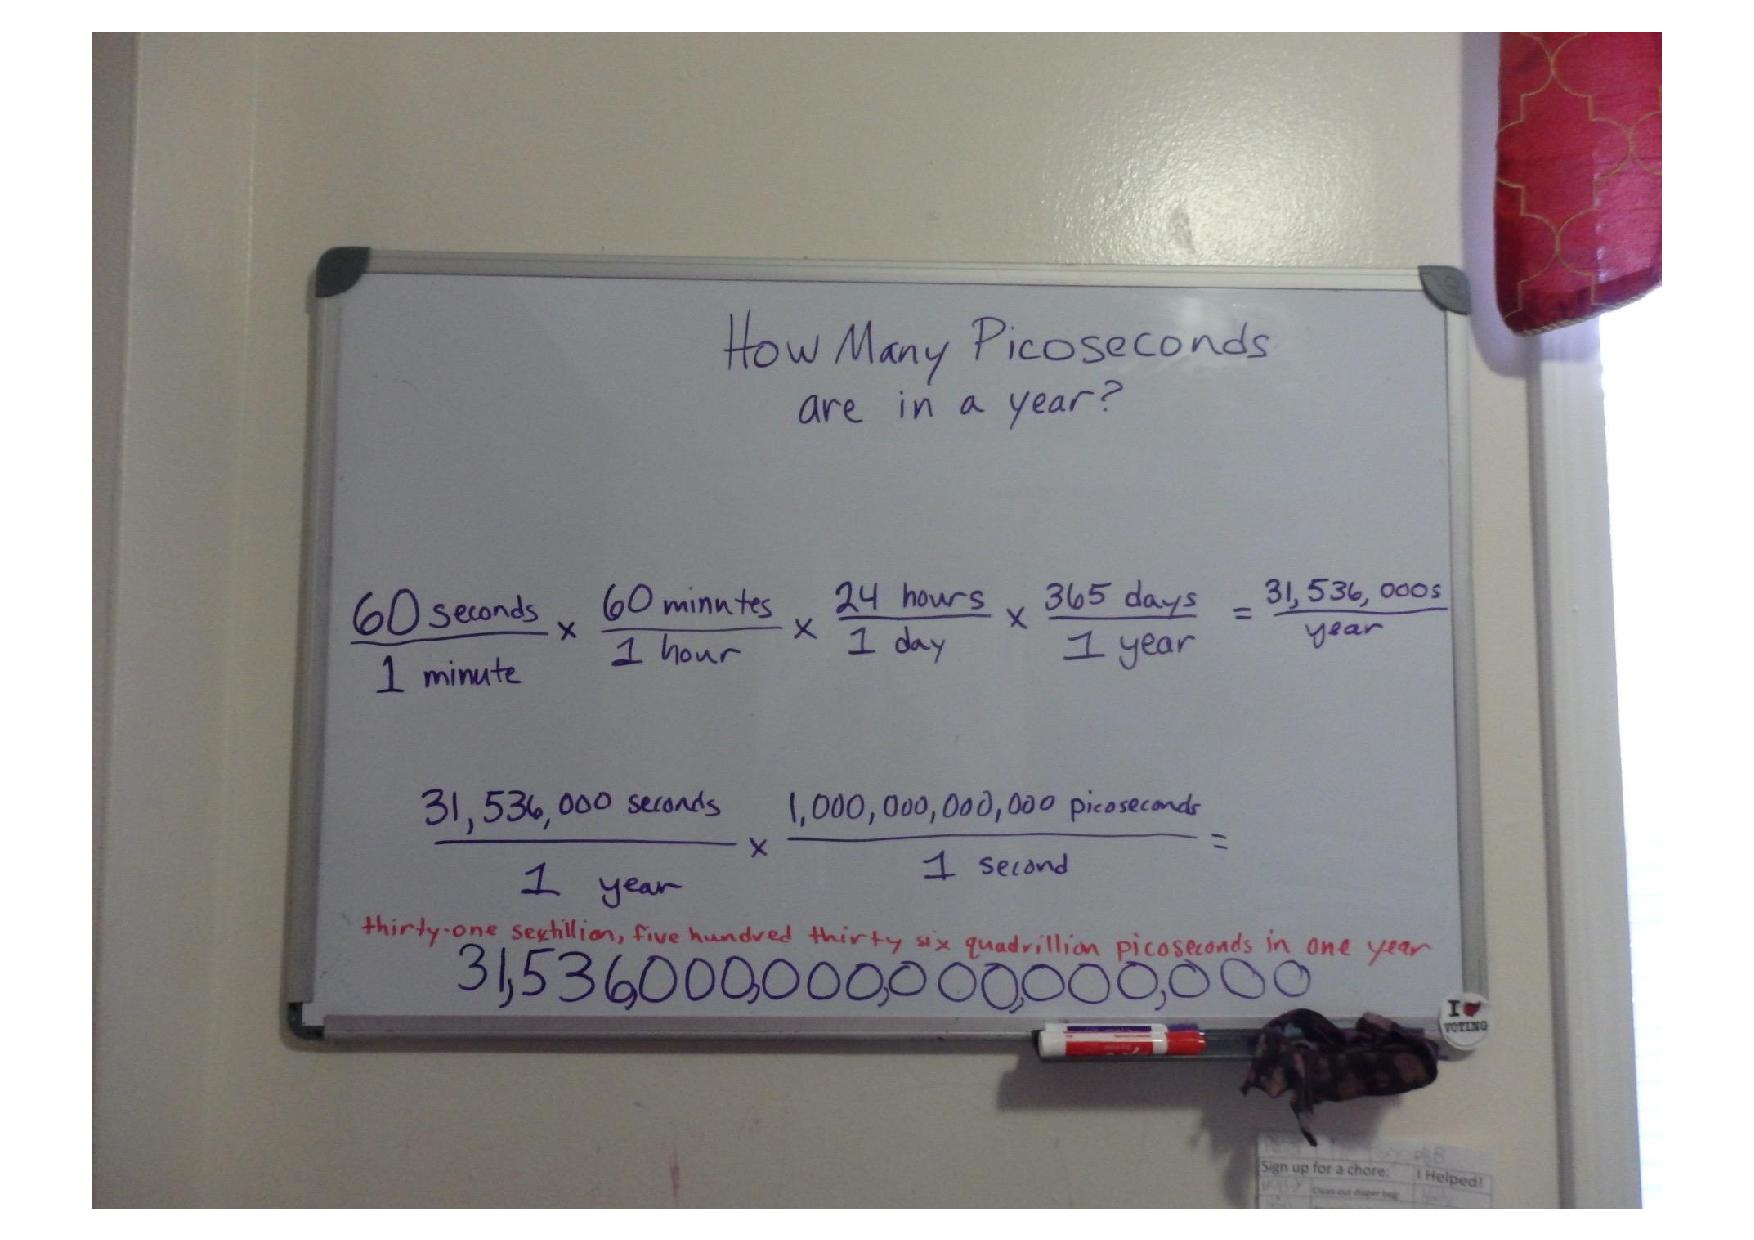 How Many Picoseconds
are in a year?
60 seconds / 1 minute x 60 minutes / 1 hour x 24 hours / 1 day x 365 days / 1 year = 31,536,000s / year
31,536,000 seconds / 1 year x 1,000,000,000,000 picoseconds / 1 second =
thirty-one sextillion, five hundred thirty six quadrillion picoseconds in one year
31,536,000,000,000,000,000
I ♥
VOTING
Sign up for a chore: I Helped!
Clean out diaper bag